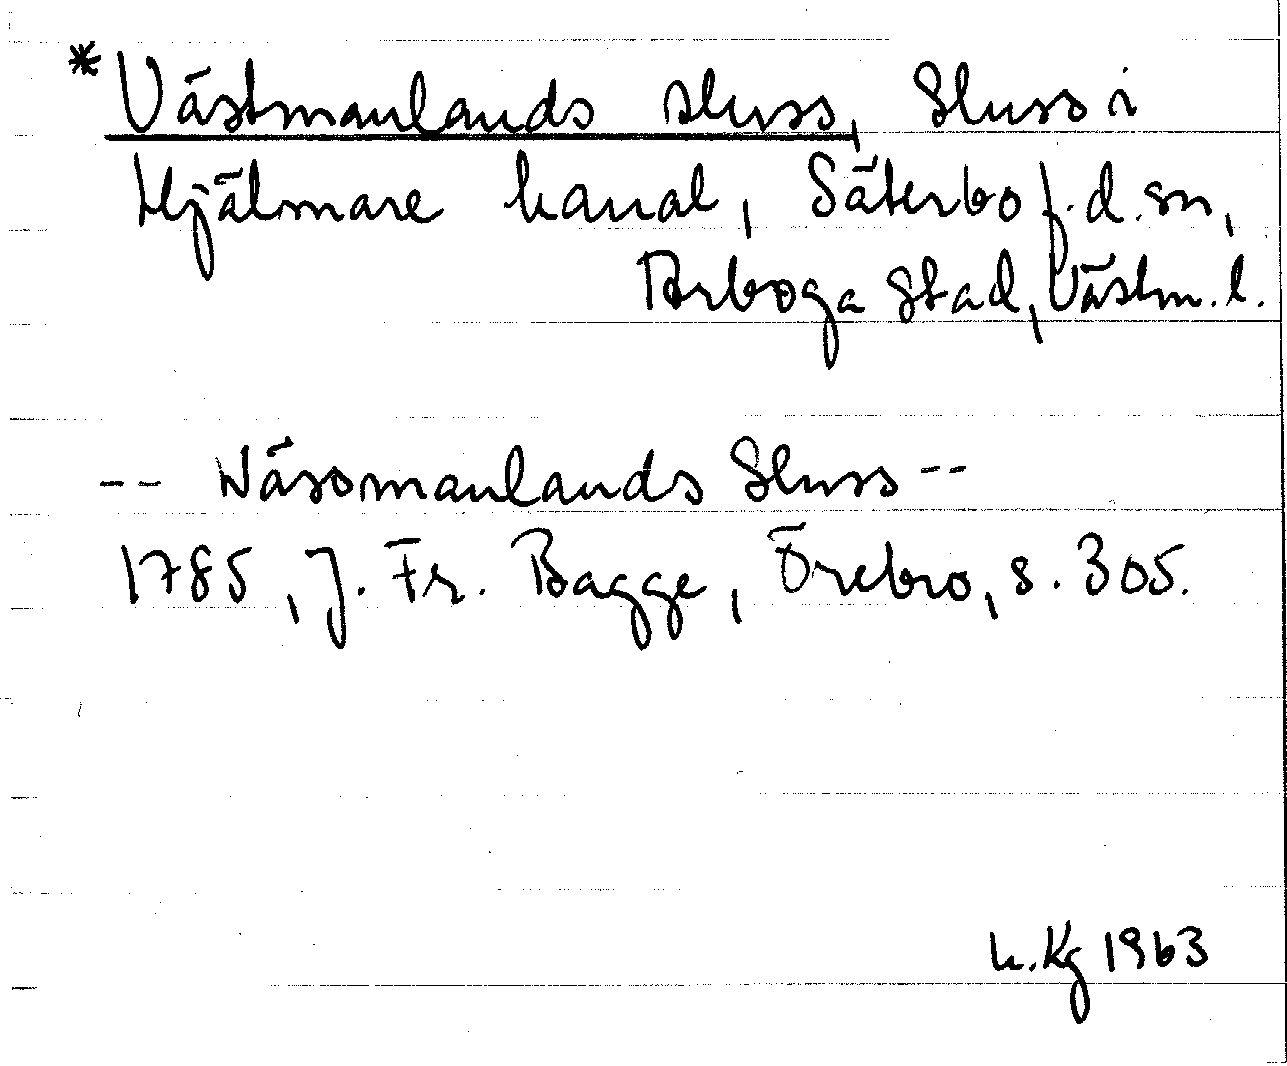 *Västmanlands sluss, Sluss i
Hjälmare kanal, Säterbo f.d. sn,
Arboga stad, Västm. l.
-- Wässmanlands Sluss --
1785, J. Fr. Bagge, Örebro, s. 305.
K.Kg 1963